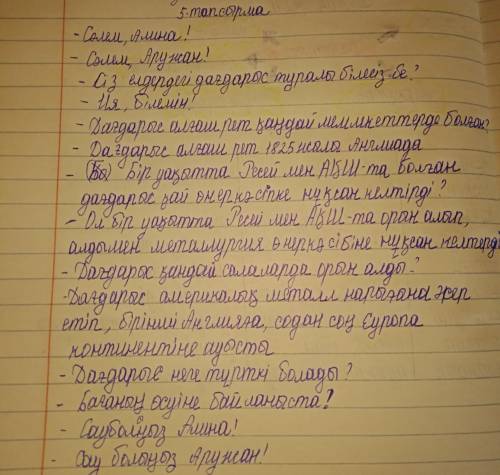 5-тапсырма
- Сәлем, Амина!
- Сәлем, Аружан!
- Сіз елдердегі дағдарыс туралы білесіз бе?
- Ия, білемін!
- Дағдарыс алғаш рет қандай мемлекеттерде болған?
- Дағдарыс алғаш рет 1825 жолы Англиада
- Бір уақытта Ресей мен АҚШ-та болған
дағдарыс қай өнеркәсіпке нұқсан келтірді?
- Ол бір уақытта Ресей мен АҚШ-та орын алып,
алдымен металлургия өнеркәсібіне нұқсан келтерді
- Дағдарыс қандай салаларда орын алды?
-Дағдарыс америкалық металл нарығана әсер
етіп, бірінші Англияға, содан соң Еуропа
континентіне ауысты
- Дағдарыс неге түрткі болады?
- Бағаның өсуіне байланыста?
- Сауболыңыз Амина!
- Сау болыңыз Аружан!